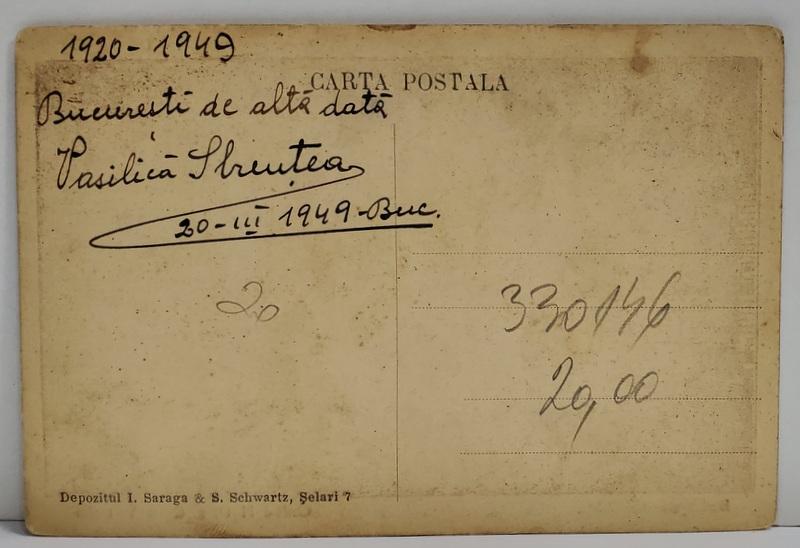 1920 - 1949
CARTA POSTALA
Bucuresti de altă dată
Vasilică
20 - III 1949 - Buc.
20
330146
20,00
Depozitul I. Saraga & S. Schwartz, Şelari 7